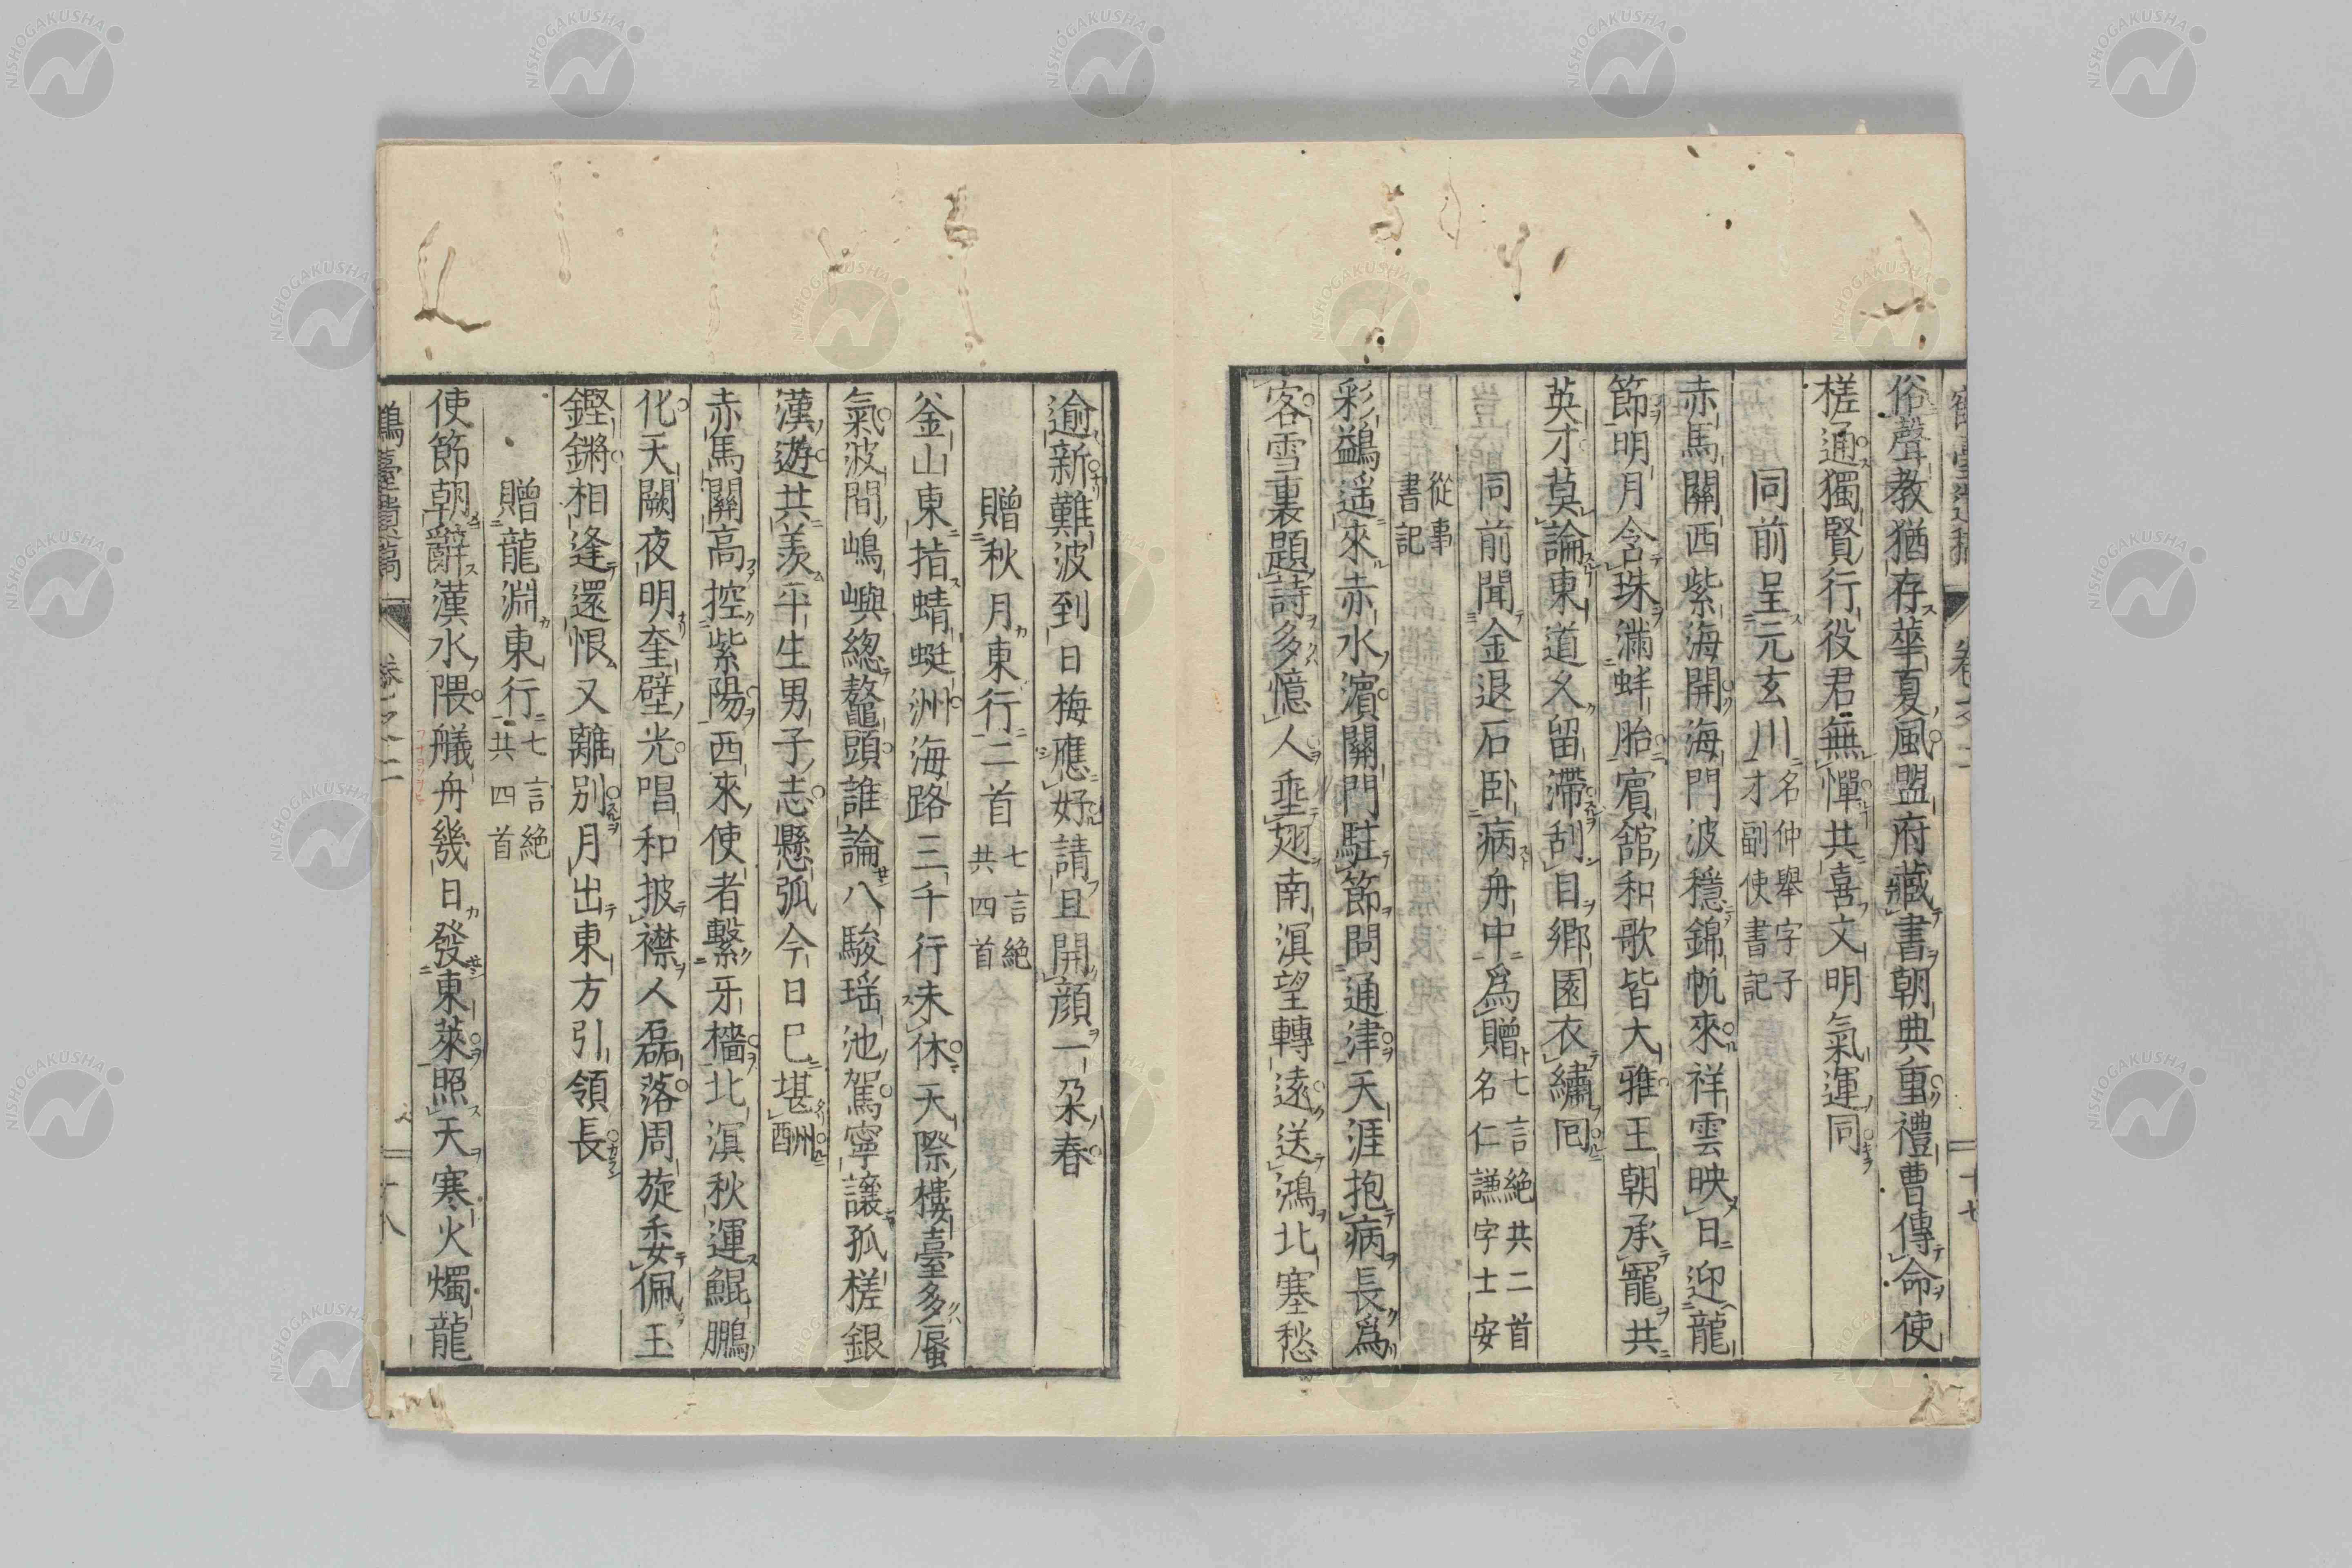 俗聲教猶存華夏風盟府藏書朝典重禮曹傳命使
槎通獨賢行役君無憚共喜文明氣運同
同前呈元玄川名仲舉字子才副使書記
赤馬關西紫海開海門波穩錦帆來祥雲映日迎龍
節明月含珠滿蚌胎賓舘和歌皆大雅王朝承寵共
英才莫論東道久留滯刮目鄉園衣繡回
同前聞金退石卧病舟中爲贈七言絶共二首名仁謙字士安
從事書記
彩鷁遥來赤水濵關門駐節問通津天涯抱病長爲
客雪裏題詩多憶人垂翅南溟望轉遠送鴻北塞愁
逾新難波到日梅應好請且開顔一朶春
贈秋月東行二首七言絶共四首
釜山東指蜻蜓洲海路三千行未休天際樓臺多蜃
氣波間嶋嶼緫鼇頭誰論八駿瑶池駕寧讓孤槎銀
漢遊共羨平生男子志懸弧今日已堪酬
赤馬關高控紫陽西來使者繫牙檣北溟秋運鯤鵬
化天闕夜明奎壁光唱和披襟人磊落周旋委佩玉
鏗鏘相逢還恨又離別月出東方引領長
贈龍淵東行七言絶共四首
使節朝辭漢水隈艤舟幾日發東萊照天寒火燭龍
鶴臺遺稿 卷之二 十八
NISHOGAKUSHA